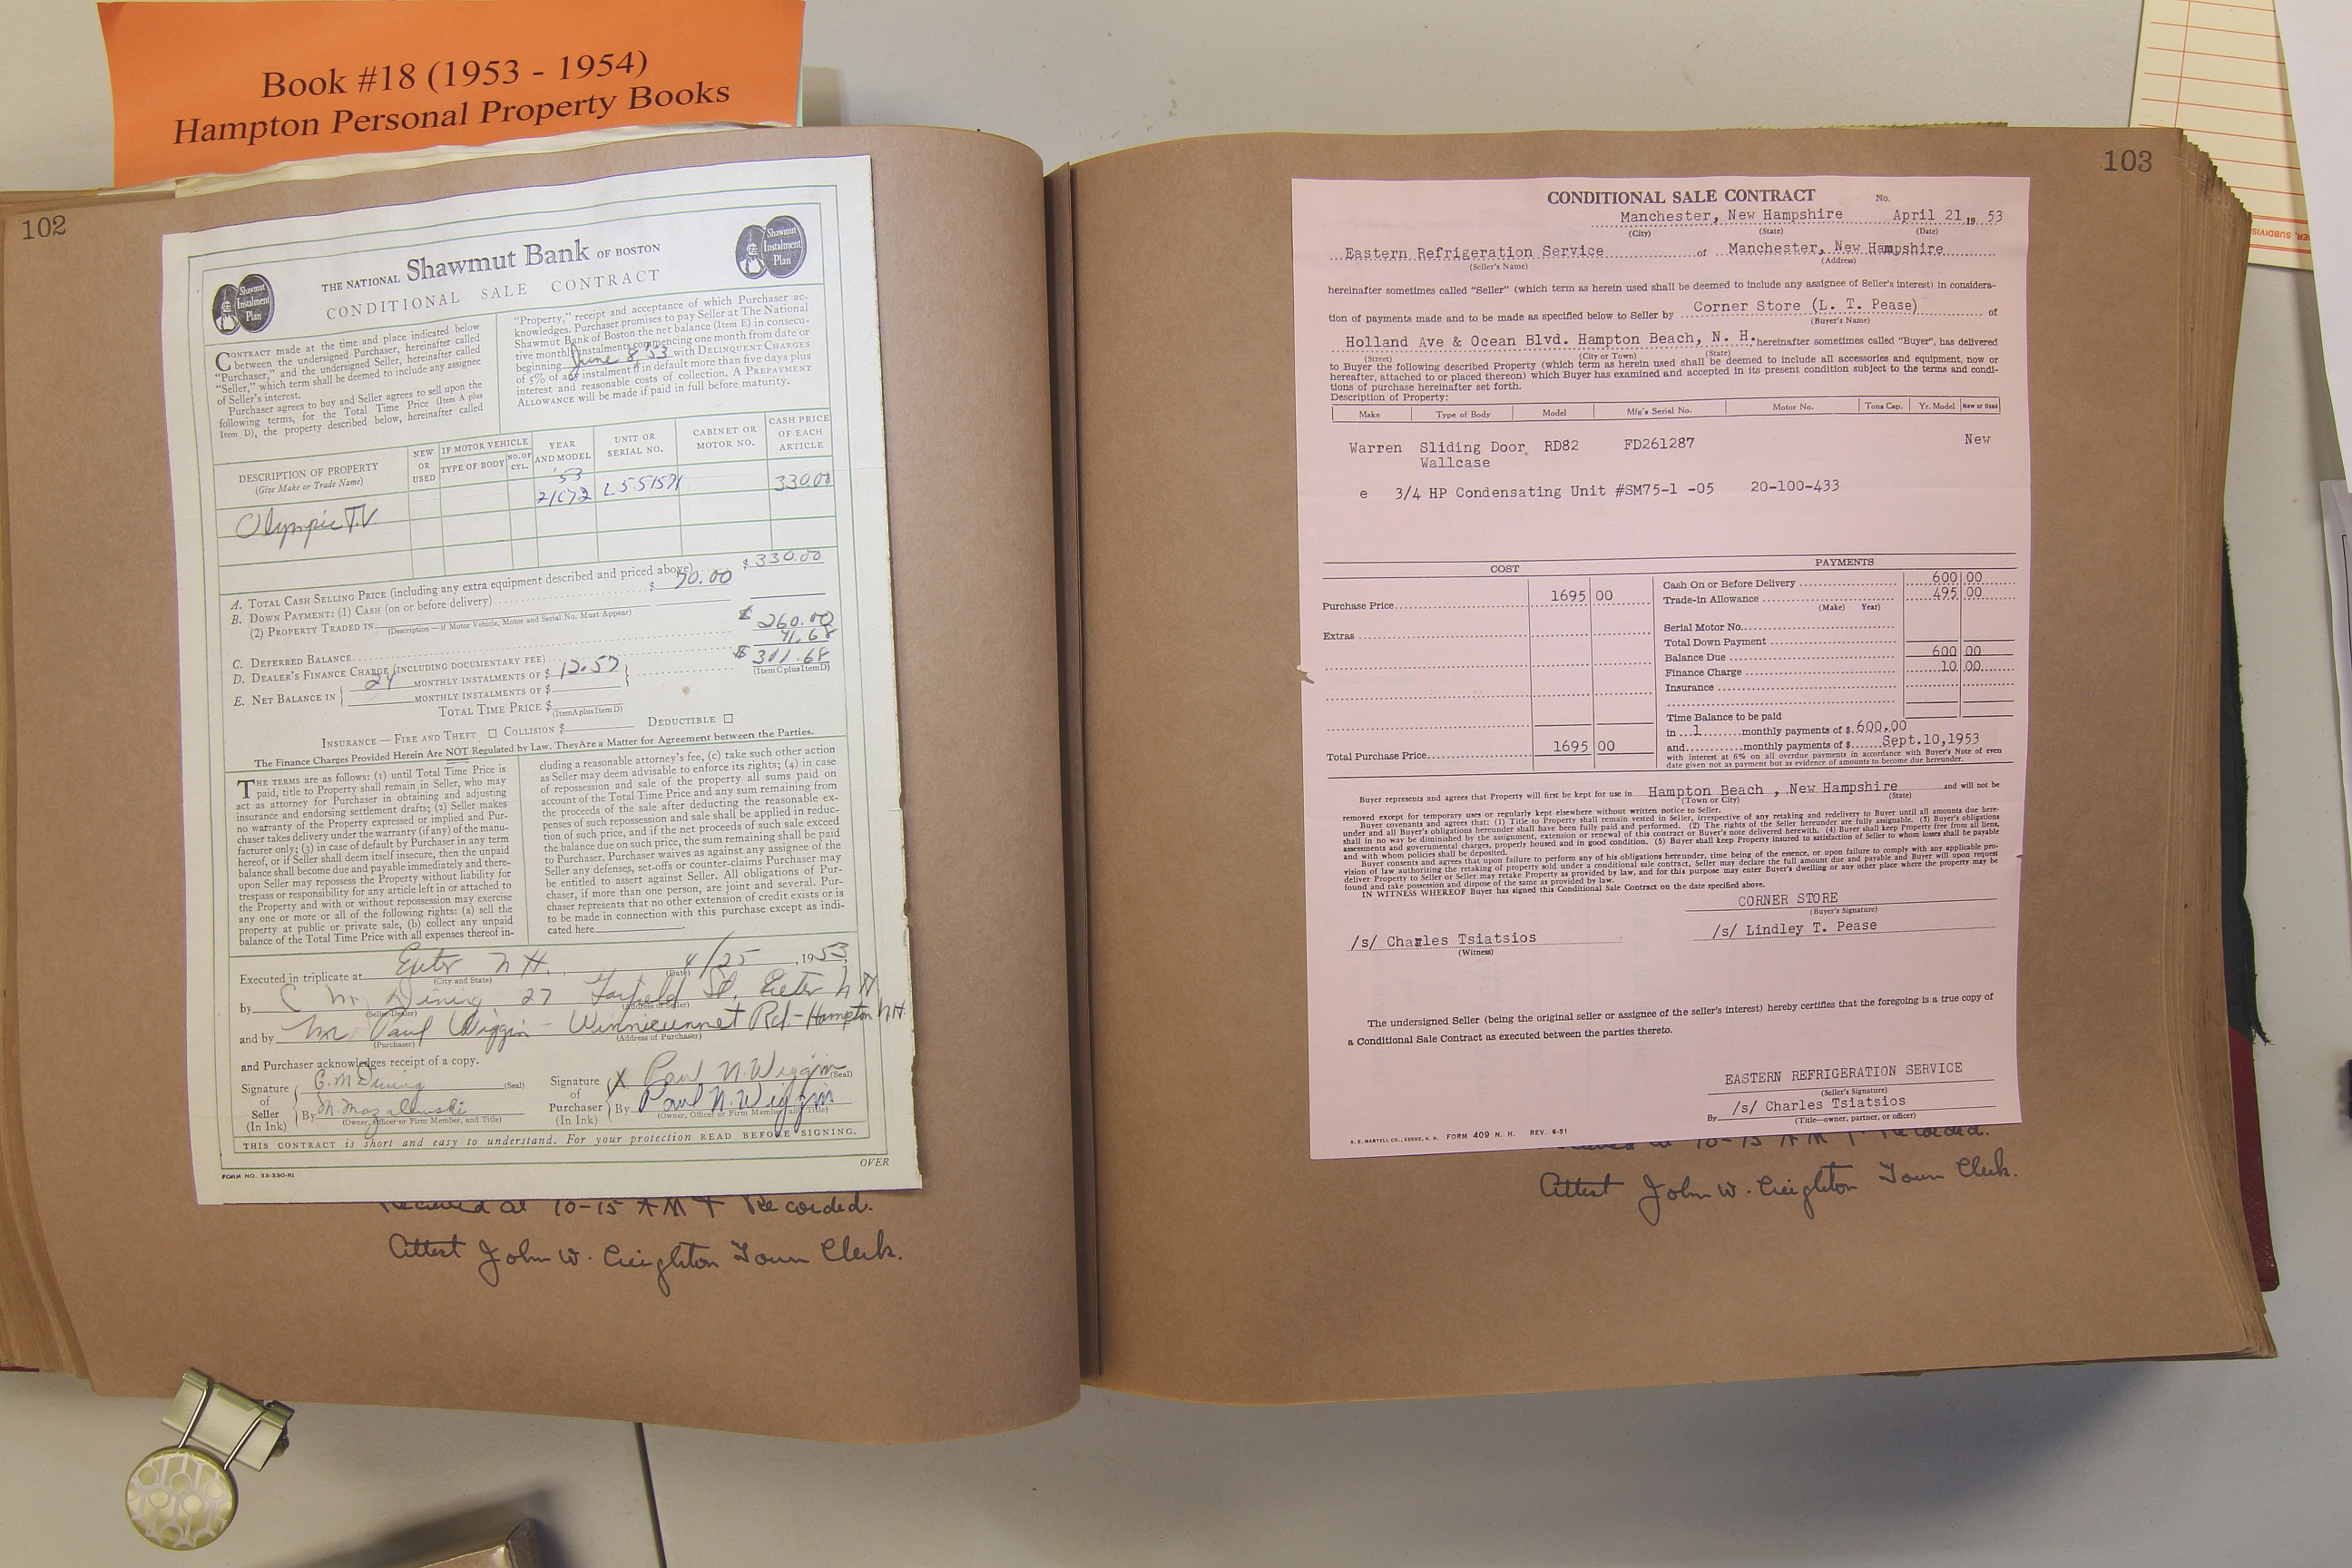 Book #18 (1953 - 1954)
Hampton Personal Property Books
102
Shawmut
Instalment
Plan
THE NATIONAL Shawmut Bank OF BOSTON
CONDITIONAL SALE CONTRACT
Shawmut
Instalment
Plan
CONTRACT made at the time and place indicated below
between the undersigned Purchaser, hereinafter called
"Purchaser," and the undersigned Seller, hereinafter called
"Seller," which term shall be deemed to include any assignee
of Seller's interest.
Purchaser agrees to buy and Seller agrees to sell upon the
following terms, for the Total Time Price (Item A plus
Item D), the property described below, hereinafter called
"Property," receipt and acceptance of which Purchaser ac-
knowledges. Purchaser promises to pay Seller at The National
Shawmut Bank of Boston the net balance (Item E) in consecu-
tive monthly instalments commencing one month from date or
beginning June 8 '53 with DELINQUENT CHARGES
of 5% of any instalment if in default more than five days plus
interest and reasonable costs of collection. A PREPAYMENT
ALLOWANCE will be made if paid in full before maturity.
DESCRIPTION OF PROPERTY
(Give Make or Trade Name)
NEW
OR
USED
IF MOTOR VEHICLE
TYPE OF BODY
NO. OF
CYL.
YEAR
AND MODEL
UNIT OR
SERIAL NO.
CABINET OR
MOTOR NO.
CASH PRICE
OF EACH
ARTICLE
'53
Olympic T.V. L551571 330.00
A. TOTAL CASH SELLING PRICE (including any extra equipment described and priced above) $ 330.00
B. DOWN PAYMENT: (1) CASH (on or before delivery) $ 70.00
(2) PROPERTY TRADED IN
(Description — if Motor Vehicle, Motor and Serial No. Must Appear)
C. DEFERRED BALANCE $ 260.00
D. DEALER'S FINANCE CHARGE (INCLUDING DOCUMENTARY FEE) 41.68
E. NET BALANCE IN { 24 MONTHLY INSTALMENTS OF $ 12.57 } $ 301.68
MONTHLY INSTALMENTS OF $ (Item C plus Item D)
TOTAL TIME PRICE $
(Item A plus Item D)
INSURANCE — FIRE AND THEFT COLLISION $ DEDUCTIBLE
The Finance Charges Provided Herein Are NOT Regulated by Law. They Are a Matter for Agreement between the Parties.
THE TERMS are as follows: (1) until Total Time Price is
paid, title to Property shall remain in Seller, who may
act as attorney for Purchaser in obtaining and adjusting
insurance and endorsing settlement drafts; (2) Seller makes
no warranty of the Property expressed or implied and Pur-
chaser takes delivery under the warranty (if any) of the manu-
facturer only; (3) in case of default by Purchaser in any term
hereof, or if Seller shall deem itself insecure, then the unpaid
balance shall become due and payable immediately and there-
upon Seller may repossess the Property without liability for
trespass or responsibility for any article left in or attached to
the Property and with or without repossession may exercise
any one or more or all of the following rights: (a) sell the
property at public or private sale, (b) collect any unpaid
balance of the Total Time Price with all expenses thereof in-
cluding a reasonable attorney's fee, (c) take such other action
as Seller may deem advisable to enforce its rights; (4) in case
of repossession and sale of the property all sums paid on
account of the Total Time Price and any sum remaining from
the proceeds of the sale after deducting the reasonable ex-
penses of such repossession and sale shall be applied in reduc-
tion of such price, and if the net proceeds of such sale exceed
the balance due on such price, the sum remaining shall be paid
to Purchaser. Purchaser waives as against any assignee of the
Seller any defenses, set-offs or counter-claims Purchaser may
be entitled to assert against Seller. All obligations of Pur-
chaser, if more than one person, are joint and several. Pur-
chaser represents that no other extension of credit exists or is
to be made in connection with this purchase except as indi-
cated here
Executed in triplicate at Exeter N H. 4/25, 1953,
(City and State) (Date)
by C M Dining 27 Garfield St. Exeter N H.
(Seller-Dealer) (Address of Seller)
and by Mr Paul Wiggin - Winnicunnet Rd - Hampton N H.
(Purchaser) (Address of Purchaser)
and Purchaser acknowledges receipt of a copy.
Signature
of
Seller
(In Ink)
C. M Dining (Seal)
By M Mazalewski
(Owner, Officer or Firm Member, and Title)
Signature
of
Purchaser
(In Ink)
X Paul N. Wiggin (Seal)
By Paul N. Wiggin
(Owner, Officer or Firm Member, and Title)
THIS CONTRACT is short and easy to understand. For your protection READ BEFORE SIGNING.
FORM NO. 33-330-R1
OVER
Received at 10-15 AM + Recorded.
Attest John W. Creighton Town Clerk.
103
CONDITIONAL SALE CONTRACT No.
Manchester, New Hampshire April 21 19 53
(City) (State) (Date)
Eastern Refrigeration Service of Manchester, New Hampshire
(Seller's Name) (Address)
hereinafter sometimes called "Seller" (which term as herein used shall be deemed to include any assignee of Seller's interest) in considera-
tion of payments made and to be made as specified below to Seller by Corner Store (L. T. Pease) of
(Buyer's Name)
Holland Ave & Ocean Blvd. Hampton Beach, N. H. hereinafter sometimes called "Buyer", has delivered
(Street) (City or Town) (State)
to Buyer the following described Property (which term as herein used shall be deemed to include all accessories and equipment, now or
hereafter, attached to or placed thereon) which Buyer has examined and accepted in its present condition subject to the terms and condi-
tions of purchase hereinafter set forth.
Description of Property:
Make Type of Body Model Mfg's Serial No. Motor No. Tons Cap. Yr. Model New or Used
Warren Sliding Door RD82 FD261287 New
Wallcase
e 3/4 HP Condensating Unit #SM75-1 -05 20-100-433
COST
Purchase Price 1695 00
Extras
Total Purchase Price 1695 00
PAYMENTS
Cash On or Before Delivery 600 00
Trade-in Allowance 495 00
(Make) Year)
Serial Motor No.
Total Down Payment
Balance Due 600 00
Finance Charge 10 00
Insurance
Time Balance to be paid
in 1 monthly payments of $ 600.00
and monthly payments of $ Sept.10,1953
with interest at 6% on all overdue payments in accordance with Buyer's Note of even
date given not as payment but as evidence of amounts to become due hereunder.
Buyer represents and agrees that Property will first be kept for use in Hampton Beach , New Hampshire and will not be
(Town or City) (State)
removed except for temporary uses or regularly kept elsewhere without written notice to Seller.
Buyer covenants and agrees that: (1) Title to Property shall remain vested in Seller, irrespective of any retaking and redelivery to Buyer until all amounts due here-
under and all Buyer's obligations hereunder shall have been fully paid and performed. (2) The rights of the Seller hereunder are fully assignable. (3) Buyer's obligations
shall in no way be diminished by the assignment, extension or renewal of this contract or Buyer's note delivered herewith. (4) Buyer shall keep Property free from all liens,
assessments and governmental charges, properly housed and in good condition. (5) Buyer shall keep Property insured to satisfaction of Seller to whom losses shall be payable
and with whom policies shall be deposited.
Buyer consents and agrees that upon failure to perform any of his obligations hereunder, time being of the essence, or upon failure to comply with any applicable pro-
vision of law authorizing the retaking of property sold under a conditional sale contract, Seller may declare the full amount due and payable and Buyer will upon request
deliver Property to Seller or Seller may retake Property as provided by law, and for this purpose may enter Buyer's dwelling or any other place where the property may be
found and take possession and dispose of the same as provided by law.
IN WITNESS WHEREOF Buyer has signed this Conditional Sale Contract on the date specified above.
CORNER STORE
(Buyer's Signature)
/s/ Charles Tsiatsios /s/ Lindley T. Pease
(Witness)
The undersigned Seller (being the original seller or assignee of the seller's interest) hereby certifies that the foregoing is a true copy of
a Conditional Sale Contract as executed between the parties thereto.
EASTERN REFRIGERATION SERVICE
(Seller's Signature)
By /s/ Charles Tsiatsios
(Title—owner, partner, or officer)
A. E. MARTELL CO., KEENE, N. H. FORM 409 N. H. REV. 6-51
10-15 AM + Recorded.
Attest John W. Creighton Town Clerk.